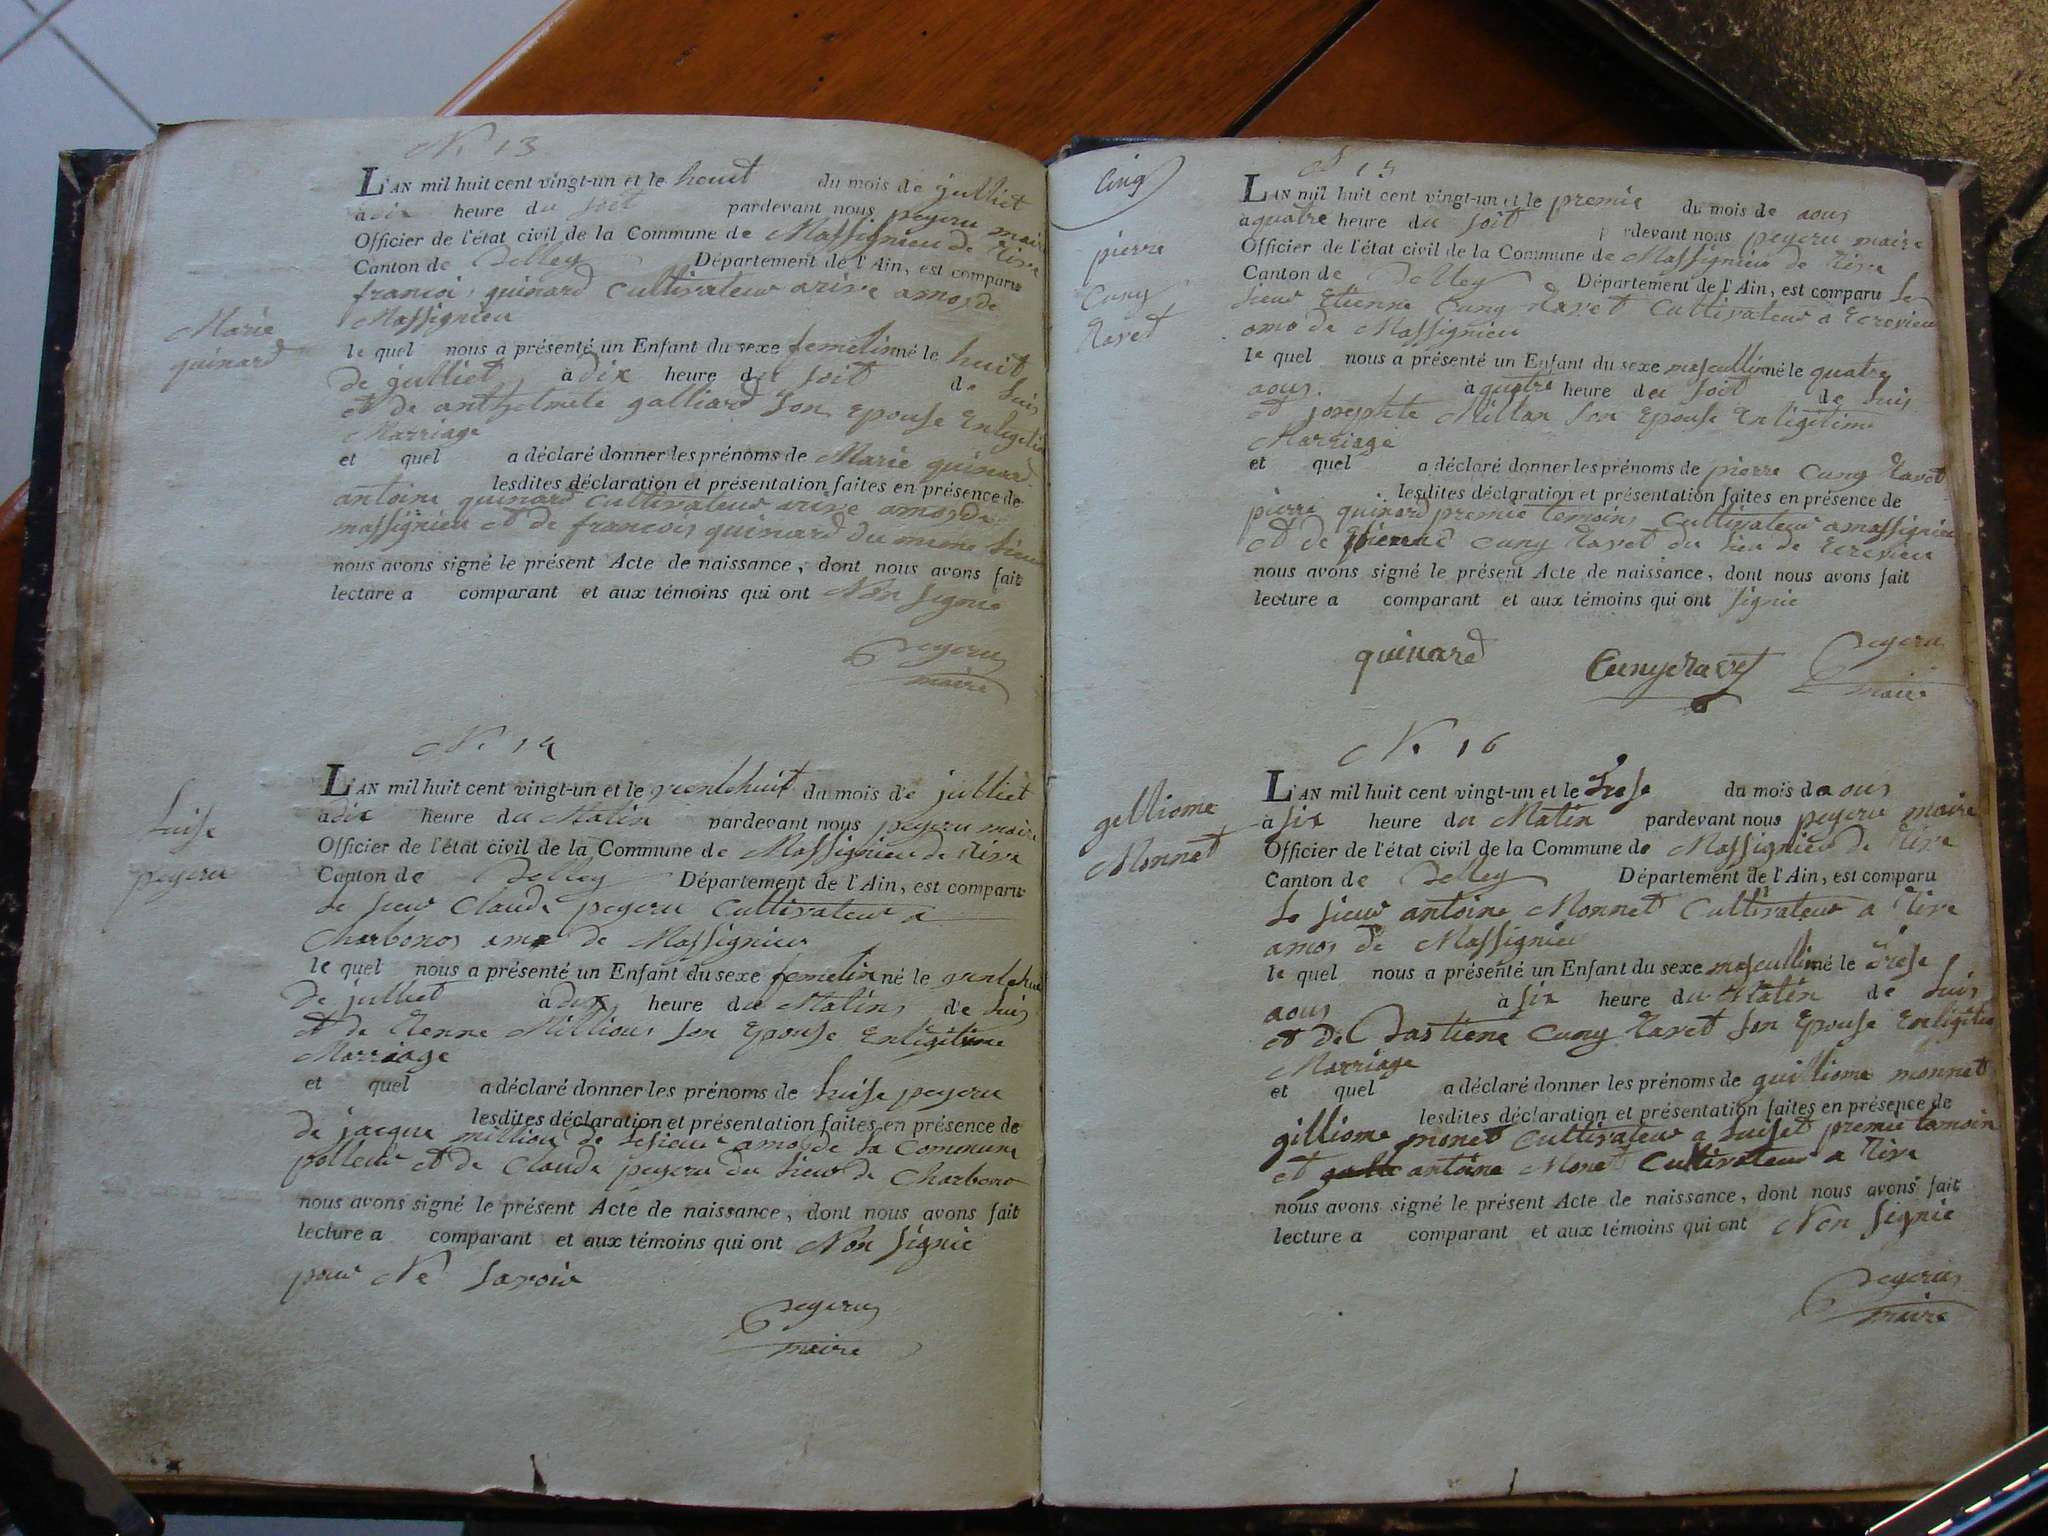 N. 13
L'AN mil huit cent vingt-un et le heuit du mois de julliet
à dix heure du soit pardevant nous peyeru maire
Officier de l'état civil de la Commune de Massignieu de Rive
Canton de Belley Département de l'Ain, est comparu
françoi quinard cultivateur arive amos de
Massignieu
Marie
quinard
le quel nous a présenté un Enfant du sexe femelin né le huit
de julliet à dix heure du soit de luis
et de anthelmete galliard son Epouse Enligeti
Marriage
et quel a déclaré donner les prénoms de Marie quinard
lesdites déclaration et présentation faites en présence de
antoine quinard cultivateur arive amos de
massignieu et de francois quinard du meme lieu
nous avons signé le présent Acte de naissance, dont nous avons fait
lecture a comparant et aux témoins qui ont Non signie
peyeru
maire
N. 14
L'AN mil huit cent vingt-un et le ventehuit du mois de julliet
à dix heure du Matin pardevant nous peyeru maire
Officier de l'état civil de la Commune de Massignieu de Rive
Canton de Belley Département de l'Ain, est comparu
Luise
peyeru
le sieur Claude peyeru Cultivateur a
Charbonos amos de Massignieu
le quel nous a présenté un Enfant du sexe femelin né le ventehui
de julliet à dix heure du Matin de luis
et de Renne Millious son Epouse Enligitime
Marriage
et quel a déclaré donner les prénoms de Luise peyeru
lesdites déclaration et présentation faites en présence de
de jacque million de amos de la Commune
pollieu et de Claude peyeru du lieu de Charbono
nous avons signé le présent Acte de naissance, dont nous avons fait
lecture a comparant et aux témoins qui ont Non signie
pour Né savoir
peyeru
maire
cinq
N 15
L'AN mil huit cent vingt-un et le premie du mois de aous
à quatre heure du soit pardevant nous peyeru maire
Officier de l'état civil de la Commune de Massignieu de Rive
Canton de Belley Département de l'Ain, est comparu le
pierre
Cuny
Ravet
sieur Etienne Cuny Ravet Cultivateur a Ecrevieu
amo de Massignieu
le quel nous a présenté un Enfant du sexe mascullin né le quatre
aous à quatre heure du soit de luis
et josephte Millan son Epouse Enligitime
Marriage
et quel a déclaré donner les prénoms de pierre Cuny Ravet
lesdites déclaration et présentation faites en présence de
pierre quinard premie temoins Cultivateur amassignieu
et de Etienne Cuny Ravet du lieu de Ecrevieu
nous avons signé le présent Acte de naissance, dont nous avons fait
lecture a comparant et aux témoins qui ont signie
quinard Cunyravet peyeru
maire
N. 16
L'AN mil huit cent vingt-un et le trese du mois de aous
à six heure du Matin pardevant nous peyeru maire
Officier de l'état civil de la Commune de Massignieu de Rive
Canton de Belley Département de l'Ain, est comparu
gelliome
Monnet
le sieur antoine Monnet Cultivateur a Rive
amos de Massignieu
le quel nous a présenté un Enfant du sexe mascullin né le trese
aous à six heure du Matin de luis
et de Bastiene Cuny Ravet son Epouse Enligitim
Marriage
et quel a déclaré donner les prénoms de guilliome monnet
lesdites déclaration et présentation faites en présence de
gilliome monet Cultivateur a premie temoin
et antoine Monet Cultivateur a Rive
nous avons signé le présent Acte de naissance, dont nous avons fait
lecture a comparant et aux témoins qui ont Non signie
peyeru
maire